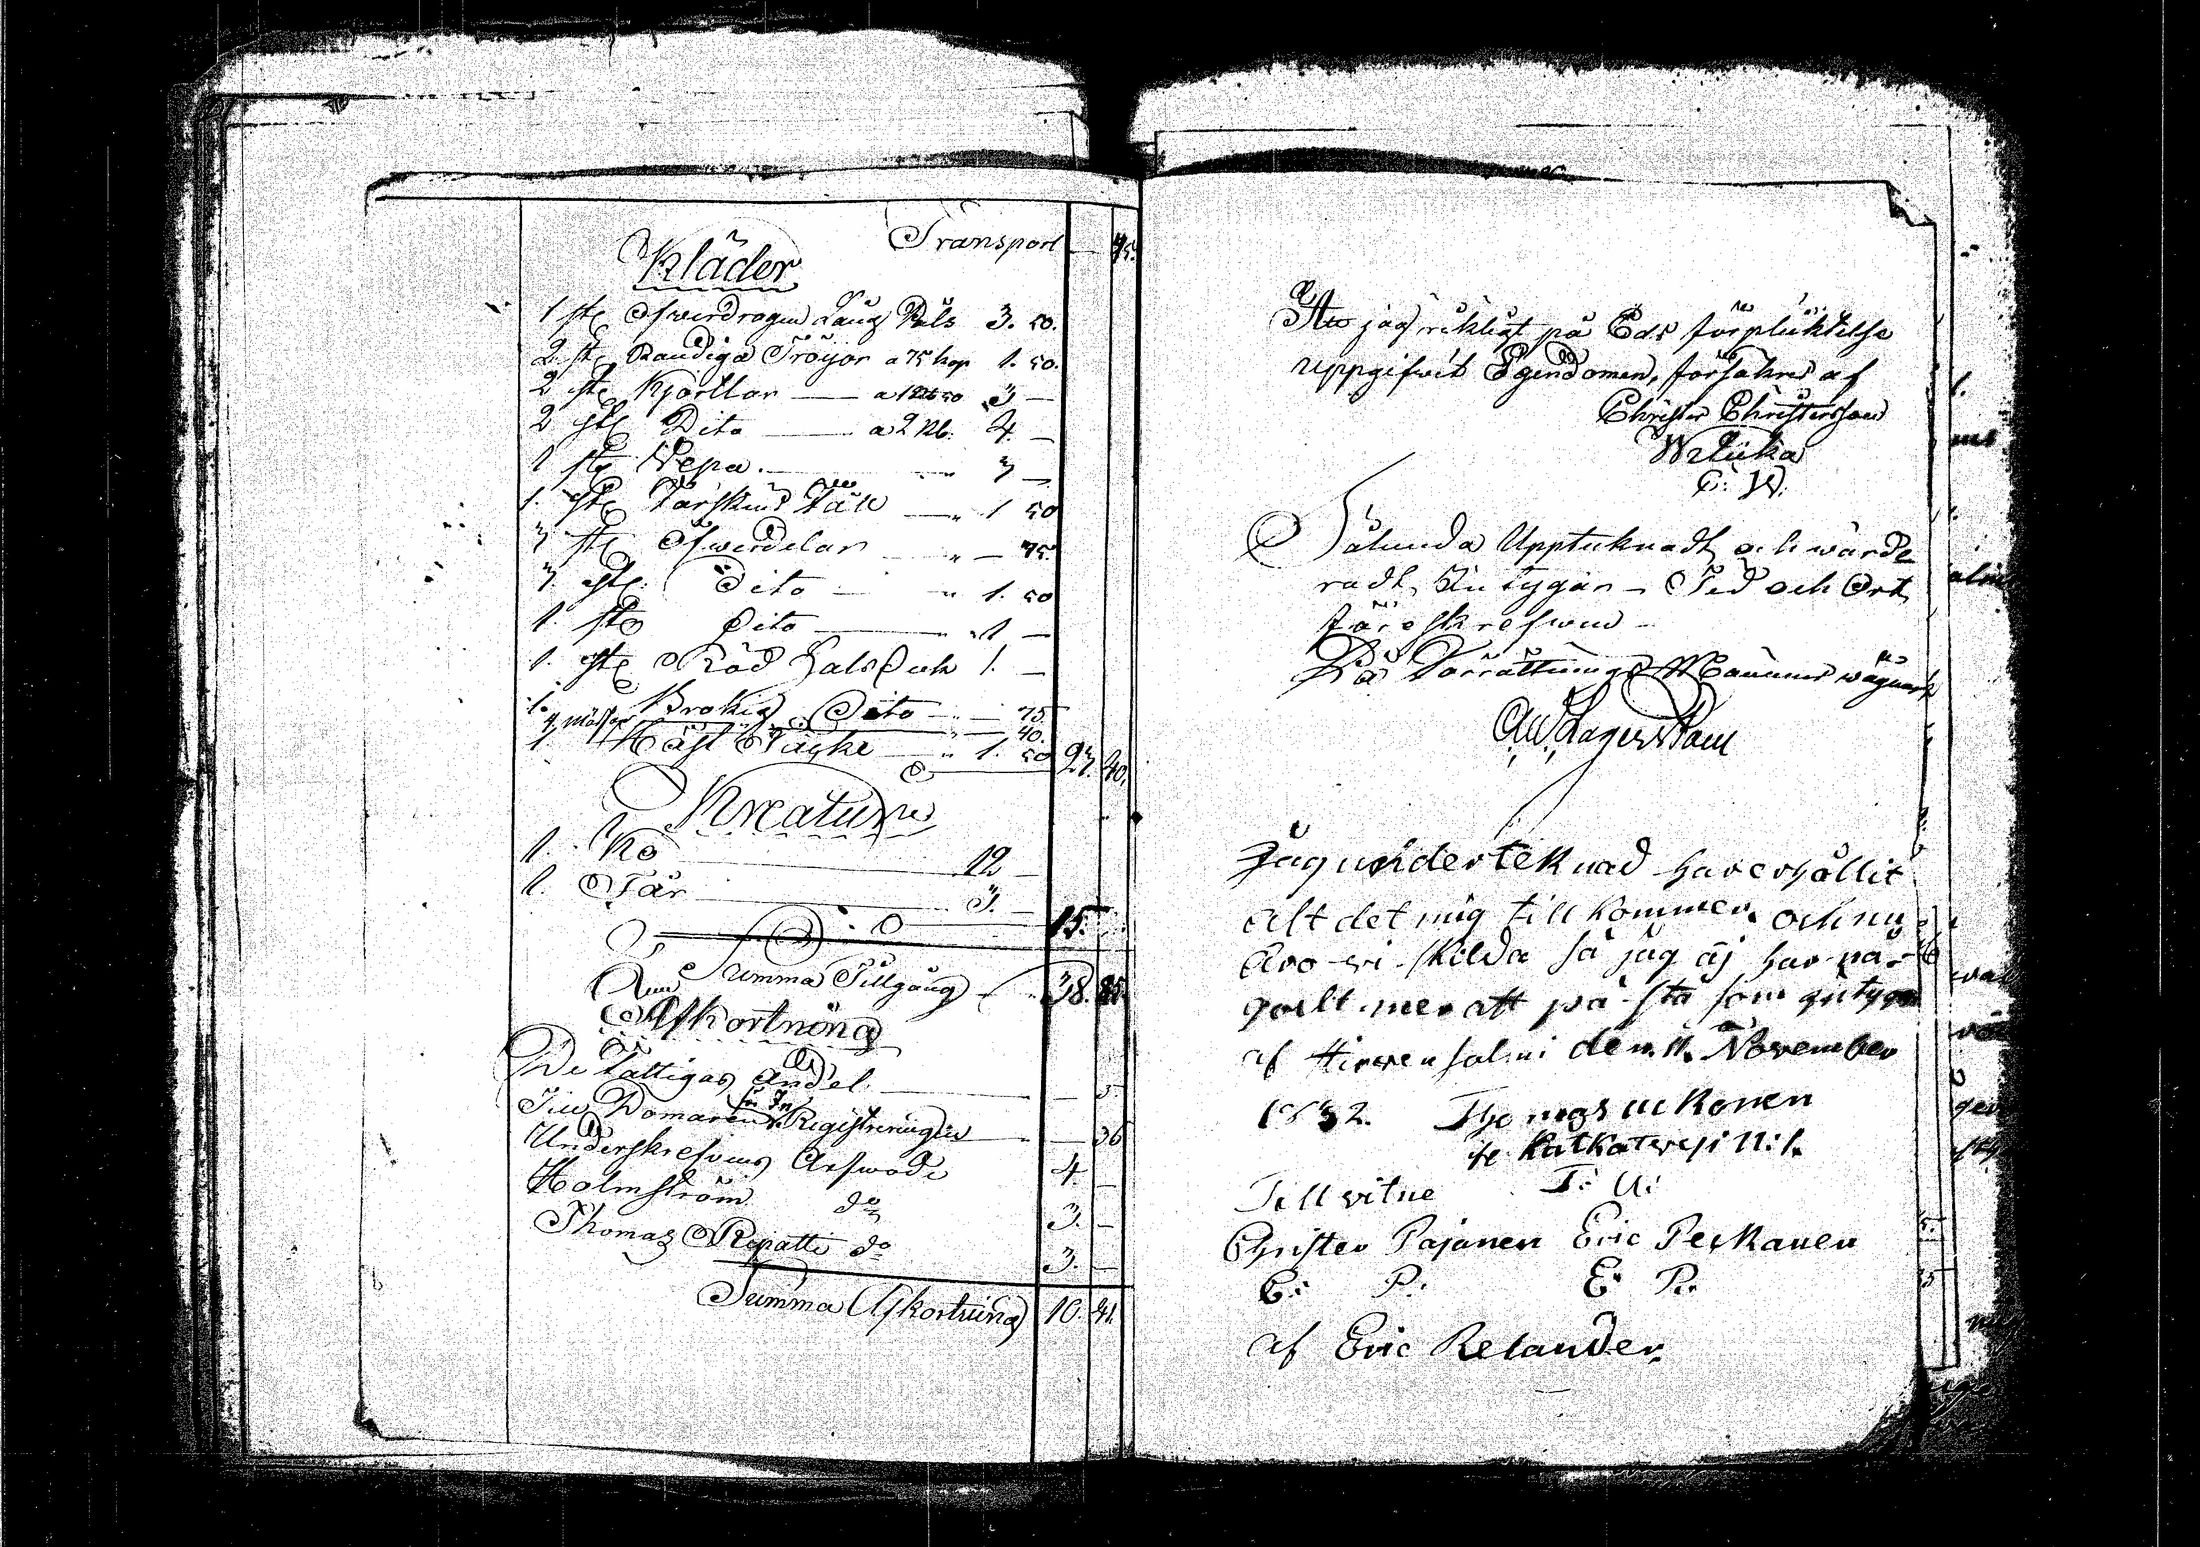 Transport — 45.
Kläder
1 st Ofwerdragen Lång Päls 3. 50.
2 st Randiga Tröijor a 75 kop 1. 50.
2 st Kjortlar — a 1 Rb 50 3 —
2 st Dito — a 2 Rb. 4. —
1 st Vepa. — " 3 —
1. st Fårskins Fäll — " 1 50
3 st Ofwerdelar — " — 75.
3. st Dito — " 1. 50
1. st Dito — " 1 —
1. st Röd Halsduk 1. —
1. Brokig Dito — " — 75
4 mössor — " — 40.
1. Häst Täcke — " 1. 50 23. 40.
Kreatur
1. Ko — 12 —
1. Får — 3. — 15.
Summa Tillgång — 38. 85.
Afkortning
De Fattigas Andel — — 5
Till Domaren för In Registrering — — 36
Underskrefvens Arfwode 4 —
Holmström do 3. —
Thomas Repatti do 3. —
Summa Afkortning 10. 41.
At jag riktigt på Eds förpliktelse
uppgifwit Egendomen, försäkras af
Christer Christersson
C: W.
Sålunda Upptecknadt och wärde
radt, betygar — Tid och Ort
föreskrefwen —
På Förrättnings Mannens wägnar
Jag underteknad har erhållit
alt det mig till kommer och nu
äro vi skilda så jag äj har nå-
got mer att på stå som bitygas
af Hirvensalmi den 11. November
1832. Thomas Ukonen
T: U:
Till vitne
Christer Pajanen Eric Peskanen
C: P: E: P:
af Eric Relander.